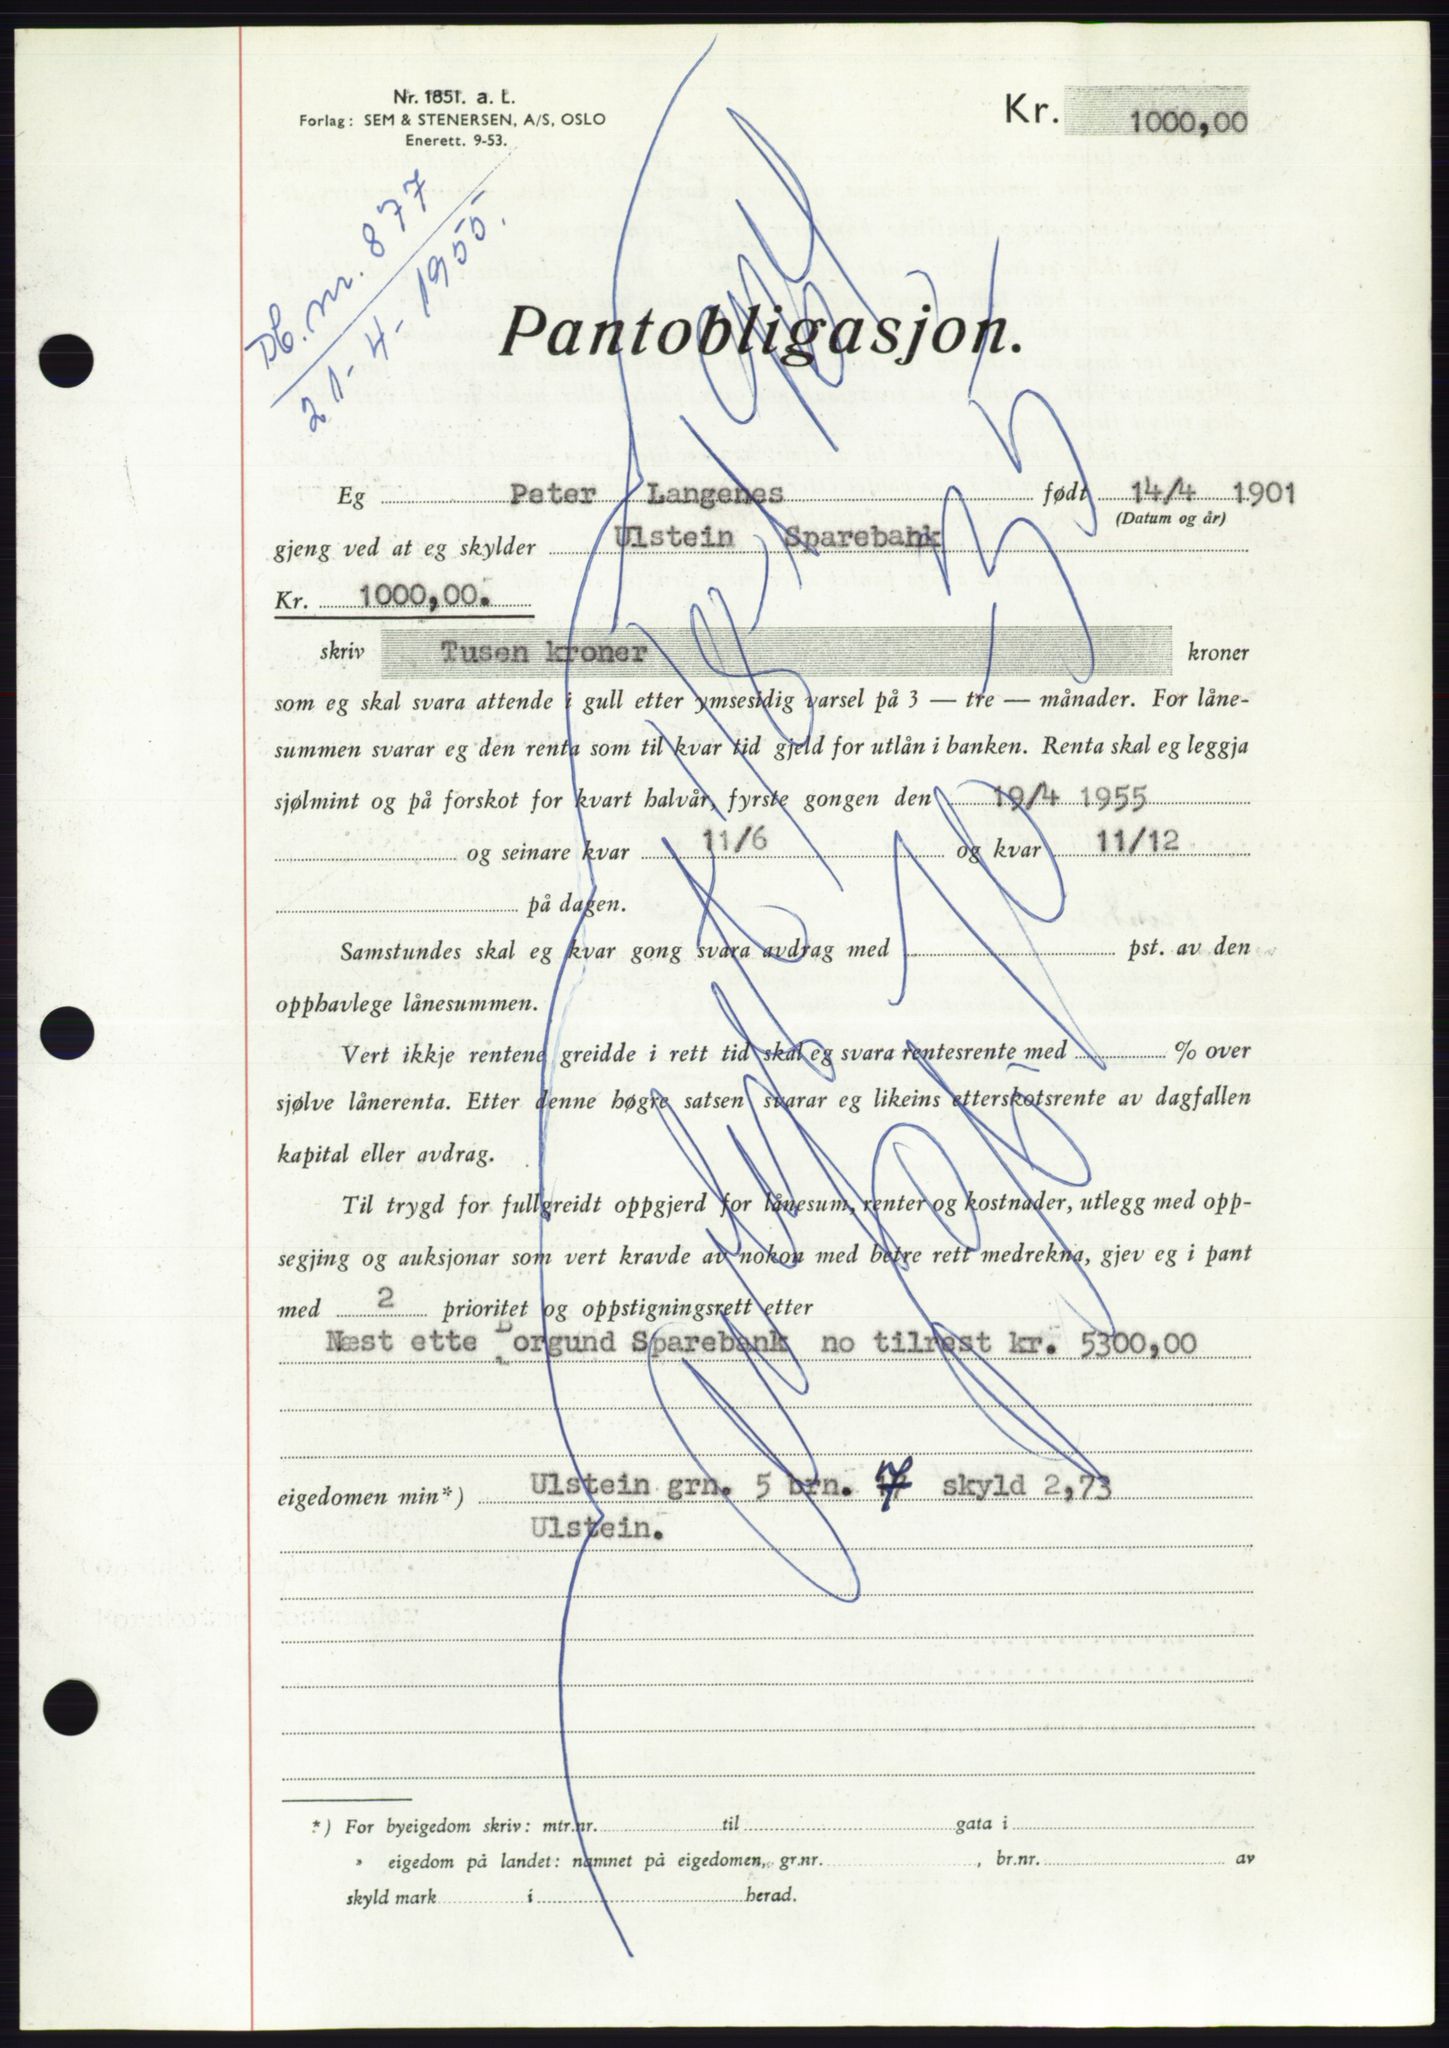 Nr. 1851. a. L.
Forlag: SEM & STENERSEN, A/S, OSLO
Enerett. 9-53.
Kr. 1000,00
Db. nr. 877
21-4-1955.
Pantobligasjon.
Eg Peter Langenes født 14/4 1901
(Datum og år)
gjeng ved at eg skylder Ulstein Sparebank
Kr. 1000,00.
skriv Tusen kroner kroner
som eg skal svara attende i gull etter ymsesidig varsel på 3 — tre — månader. For låne-
summen svarar eg den renta som til kvar tid gjeld for utlån i banken. Renta skal eg leggja
sjølmint og på forskot for kvart halvår, fyrste gongen den 19/4 1955
og seinare kvar 11/6 og kvar 11/12
på dagen.
Samstundes skal eg kvar gong svara avdrag med pst. av den
opphavlege lånesummen.
Vert ikkje rentene greidde i rett tid skal eg svara rentesrente med % over
sjølve lånerenta. Etter denne høgre satsen svarar eg likeins etterskotsrente av dagfallen
kapital eller avdrag.
Til trygd for fullgreidt oppgjerd for lånesum, renter og kostnader, utlegg med opp-
segjing og auksjonar som vert kravde av nokon med betre rett medrekna, gjev eg i pant
med 2 prioritet og oppstigningsrett etter
Næst ette Borgund Sparebank no tilrest kr. 5300,00
eigedomen min*) Ulstein grn. 5 brn. 17 skyld 2,73
Ulstein.
*) For byeigedom skriv: mtr.nr. til gata i
» eigedom på landet: namnet på eigedomen, gr.nr. , br.nr. av
skyld mark i herad.